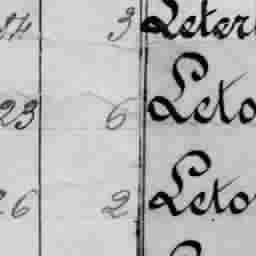 3 Leter
23 6 Leto
26 2 Leto